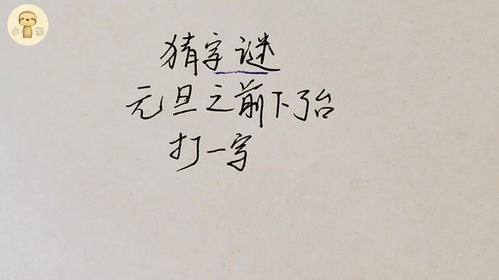 猜字谜
元旦之前下了台
打一字